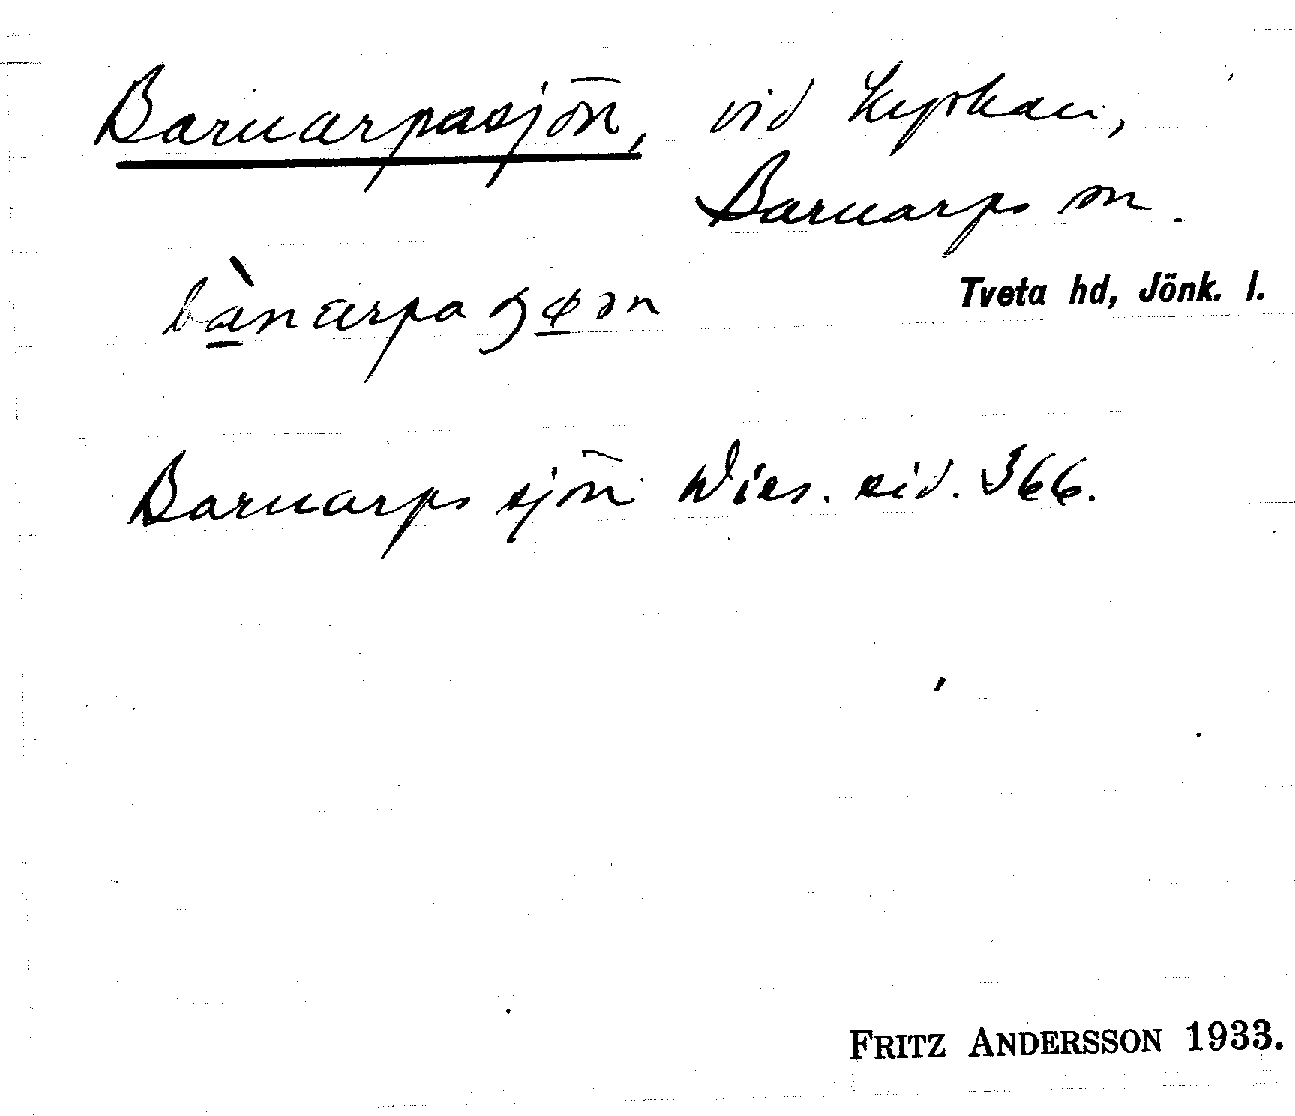 Barnarpasjön, vid kyrkan,
Barnarps sn.
Tveta hd, Jönk. l.
Barnarps sjön Wies. sid. 366.
FRITZ ANDERSSON 1933.